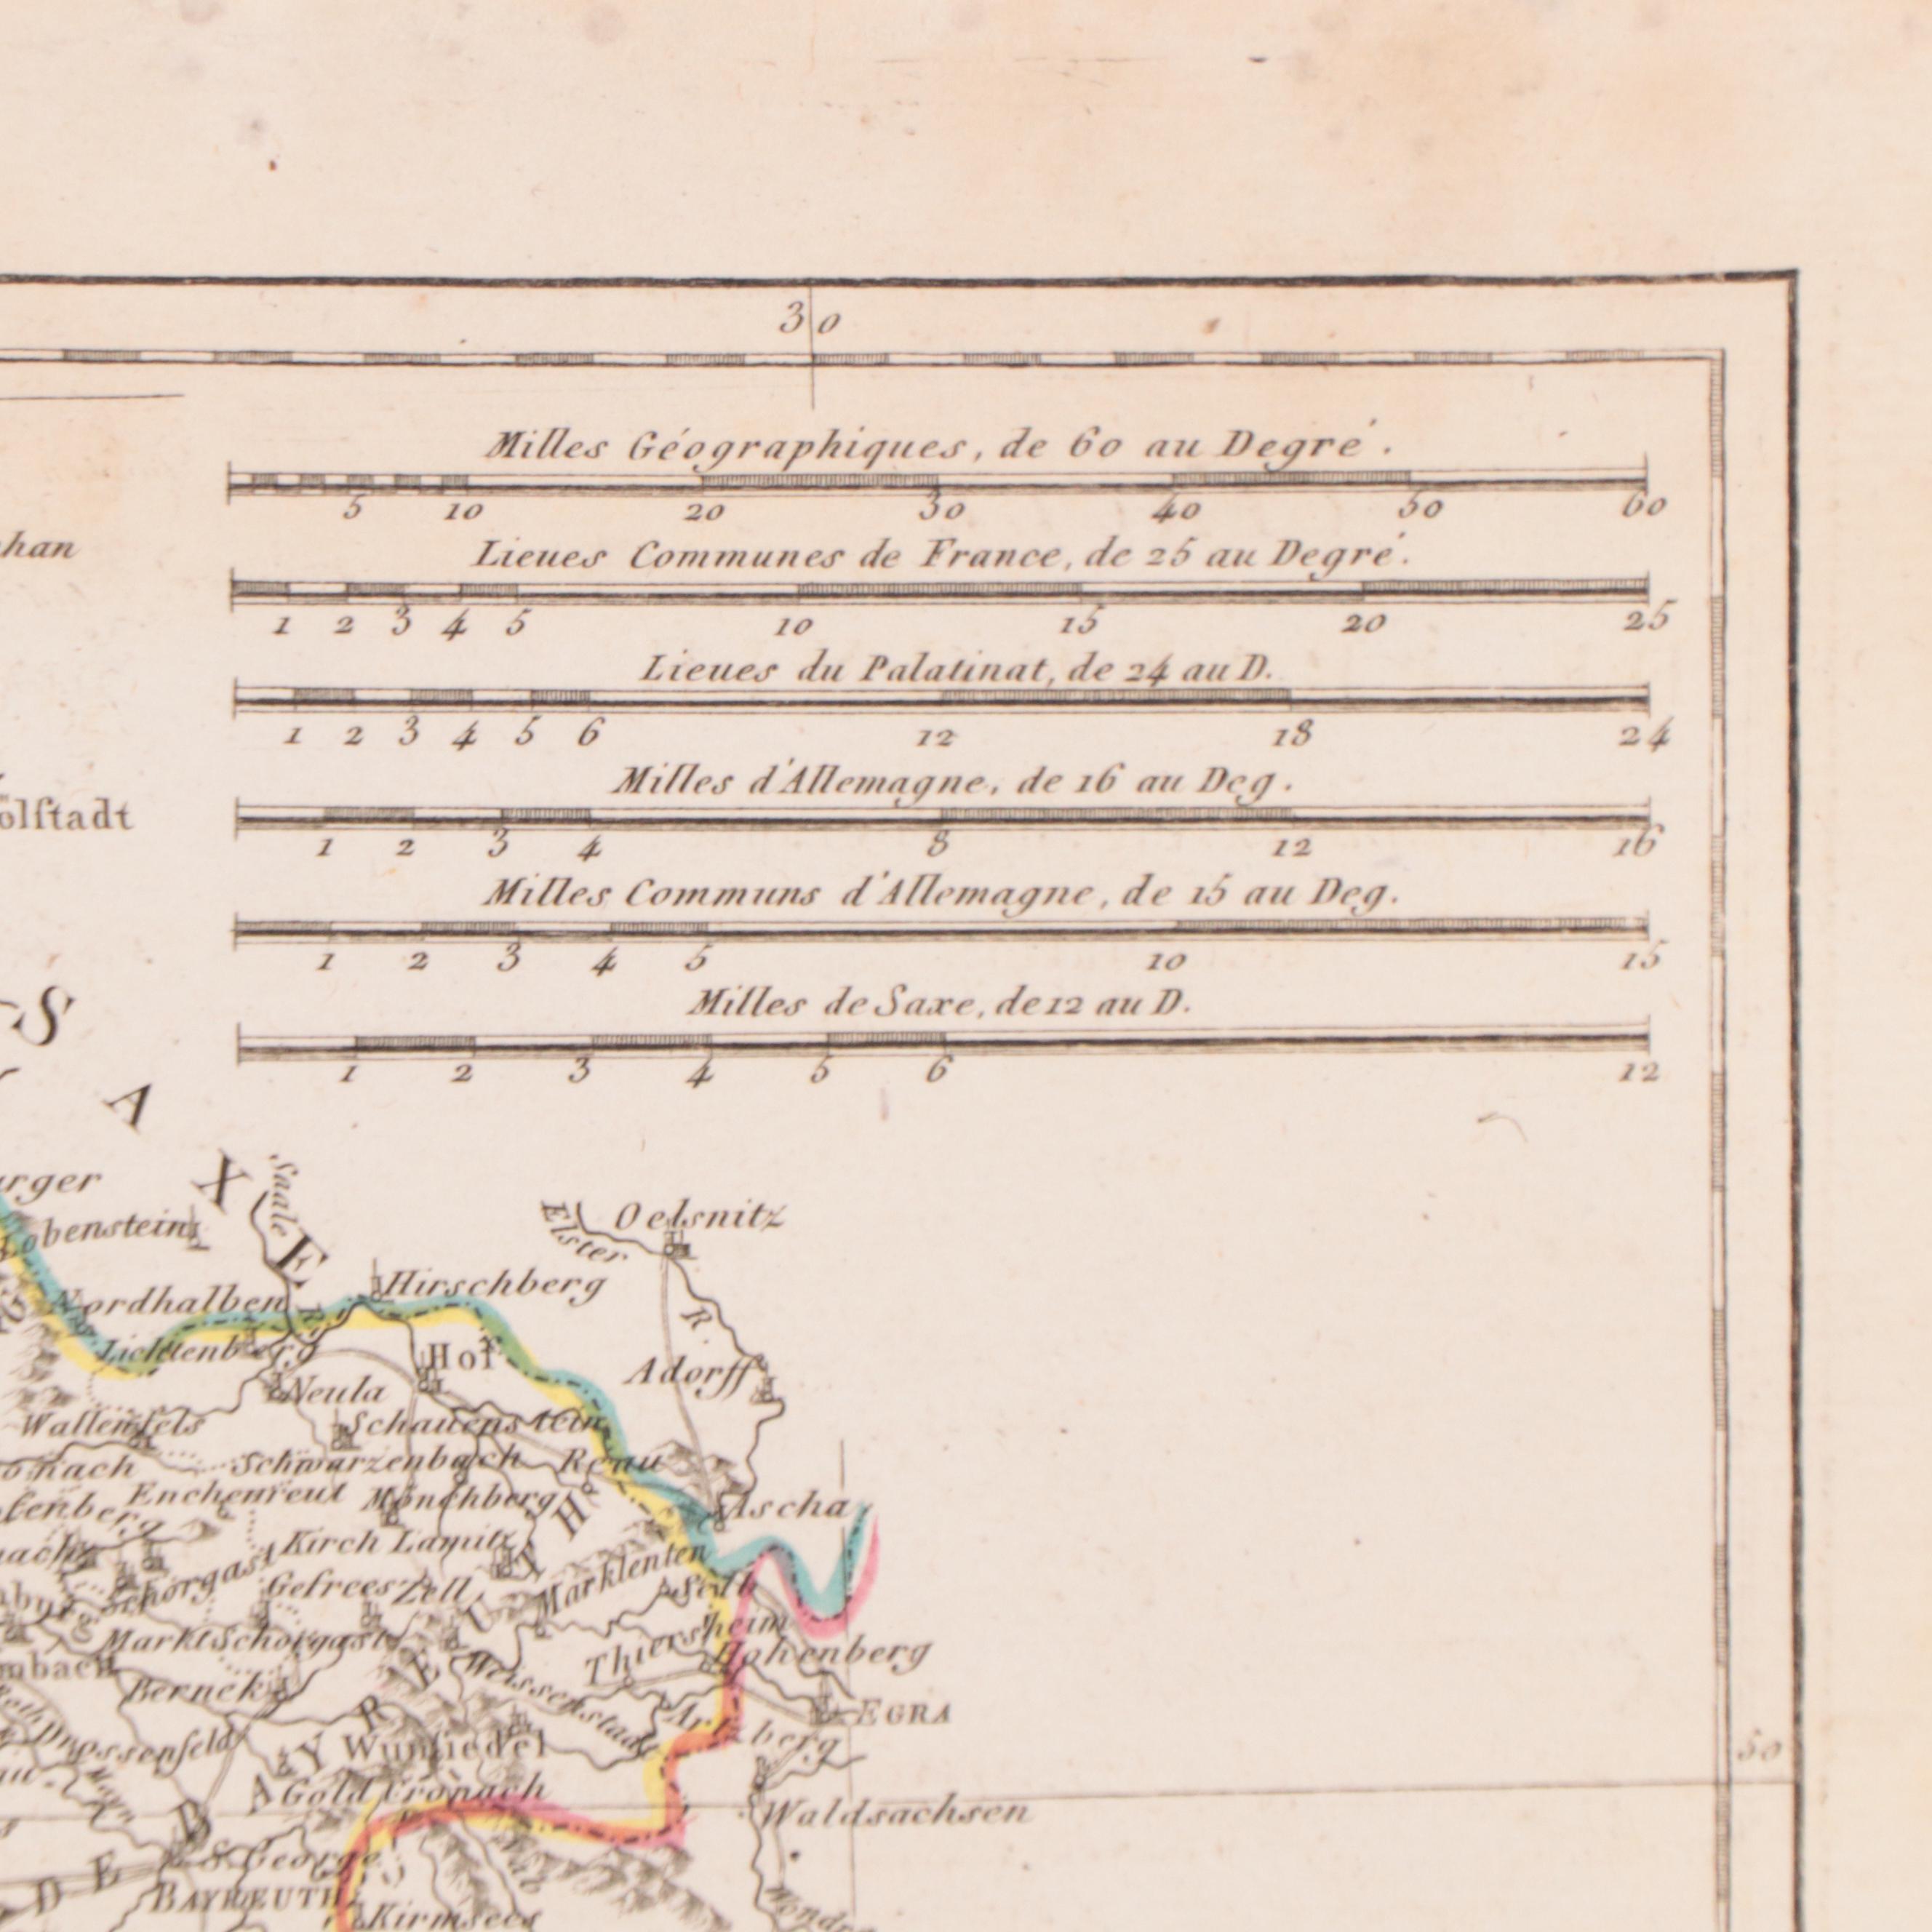 30
Milles Géographiques, de 60 au Degré.
5 10 20 30 40 50 60
Lieues Communes de France, de 25 au Degré.
1 2 3 4 5 10 15 20 25
Lieues du Palatinat, de 24 au D.
1 2 3 4 5 6 12 18 24
Milles d'Allemagne, de 16 au Deg.
1 2 3 4 8 12 16
Milles Communs d'Allemagne, de 15 au Deg.
1 2 3 4 5 10 15
Milles de Saxe, de 12 au D.
1 2 3 4 5 6 12
han
olstadt
SAXE
rger
Saale R.
Elster R.
Oelsnitz
obenstein
Hirschberg
Nordhalben
Lichtenberg
Hof
Adorff
Neula
Wallenfels
Schauenstein
onach
Schwarzenbach
Reau
Enchenreut
Mönchberg
Ascha
fenberg
Kirch Lamitz
Marklenten
Schorgast
Gefrees
Zell
Selb
Markt Schorgast
Thiersheim
Hohenberg
mbach
Berneck
Weissenstadt
Artzberg
EGRA
Drossenfeld
Wunsiedel
50
Gold Cronach
Waldsachsen
DE BAYREUTH
S. George
BAYREUTH
Kirmsees